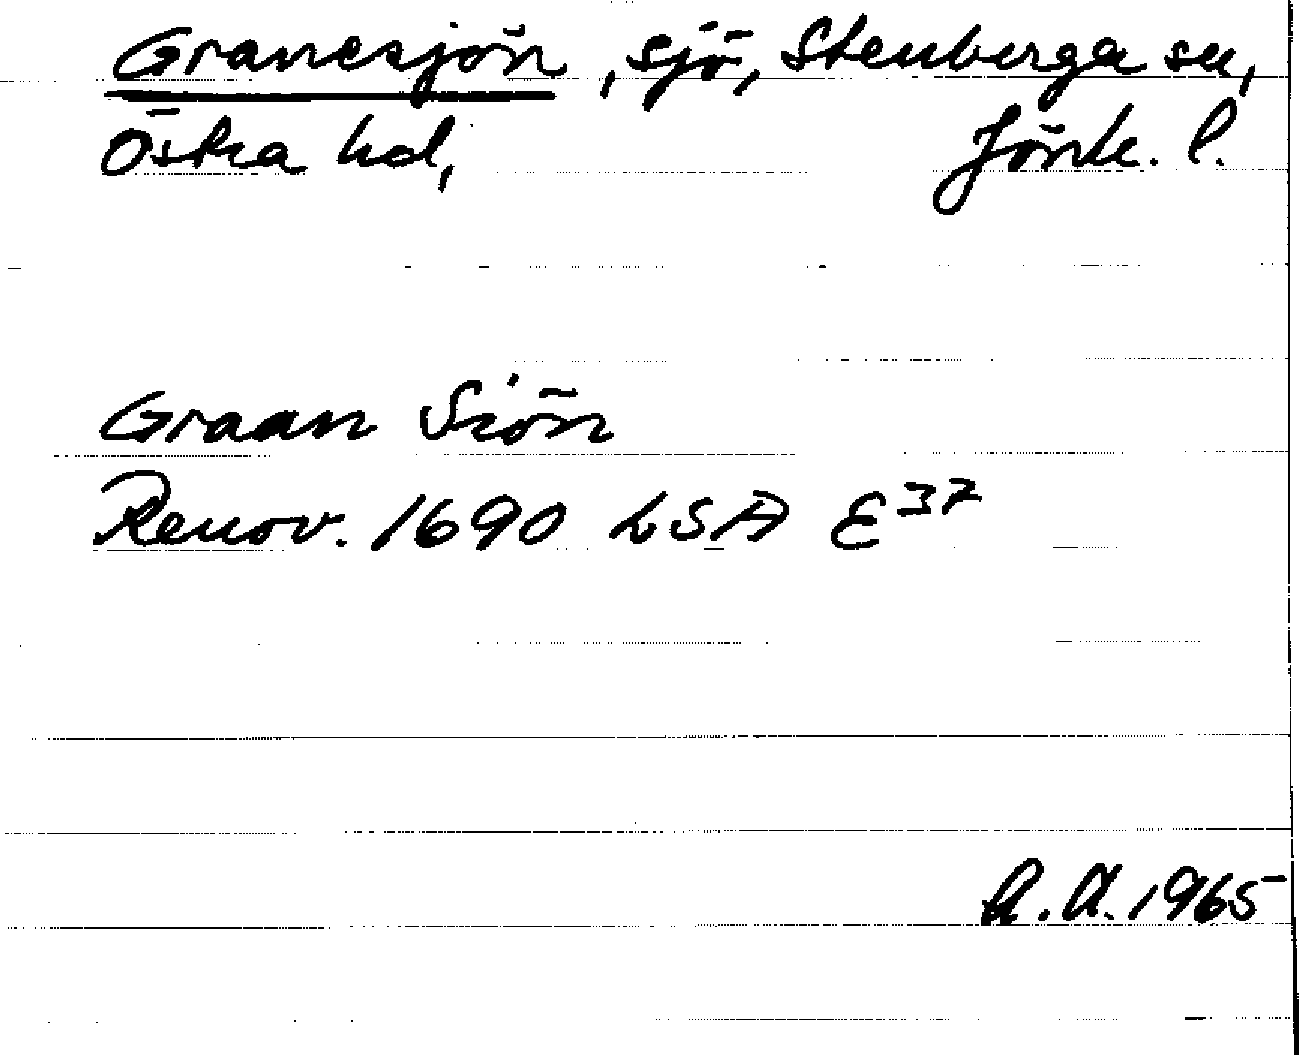 Granesjön, sjö, Stenberga sn,
Östra hd, Jönk. l.
Graan Siön
Renov. 1690 LSA E³⁷
A.A. 1965